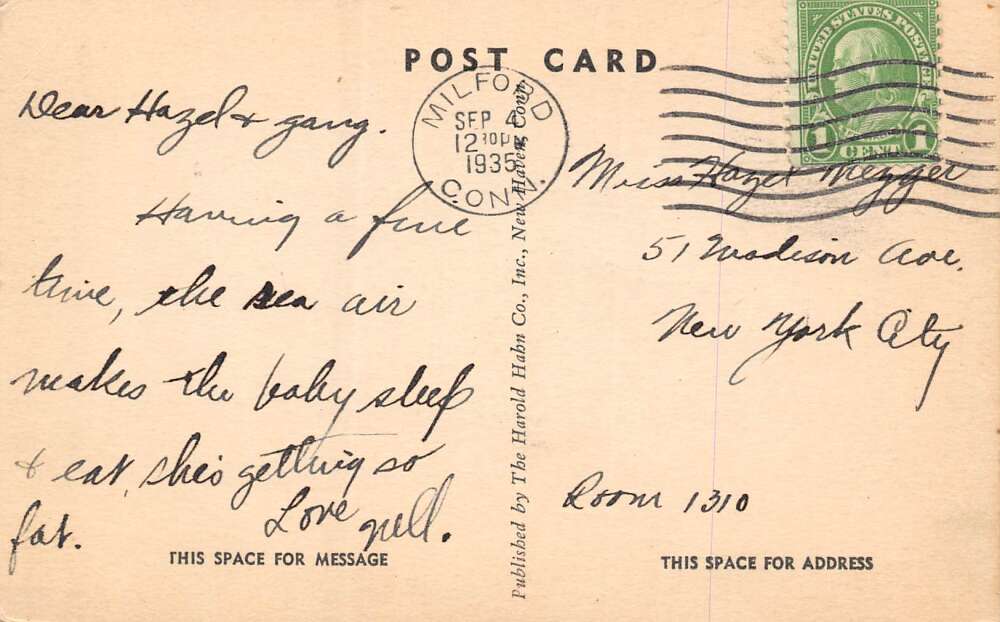 POST CARD
MILFORD
SEP 4
12 30 PM
1935
CONN.
UNITED STATES POSTAGE
1 CENT 1
Dear Hazel & gang.
Having a fine
time, the sea air
makes the baby sleep
& eat, she's getting so
fat.
Love Nell.
THIS SPACE FOR MESSAGE
Published by The Harold Hahn Co., Inc., New Haven, Conn.
Miss Hazel Mezger
51 Madison Ave.
New York City
Room 1310
THIS SPACE FOR ADDRESS